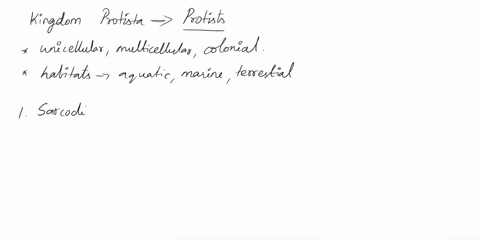 Kingdom Protista → Protists
* unicellular, multicellular, colonial.
* habitats → aquatic, marine, terrestial
1. Sarcodi